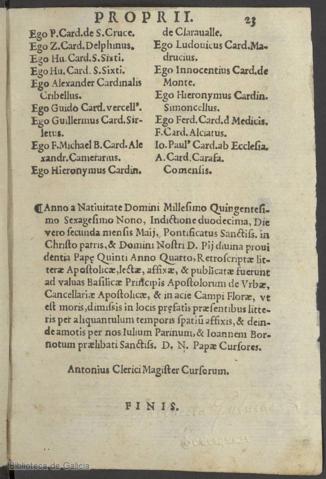 PROPRII. 23
Ego P. Card. de S. Cruce.
Ego Z. Card. Delphinus.
Ego Hu. Card. S. Sixti.
Ego Hu. Card. S. Sixti.
Ego Alexander Cardinalis
Cribellus.
Ego Guido Card. vercellˢ.
Ego Guillermus Card. Sir-
letus.
Ego F. Michael B. Card. Ale
xandr. Camerarius.
Ego Hieronymus Cardin.
de Claraualle.
Ego Ludouicus Card. Ma-
drucius.
Ego Innocentius Card. de
Monte.
Ego Hieronymus Cardin.
Simoncellus.
Ego Ferd. Card. d Medicis.
F. Card. Alciatus.
Io. Paulˀ Card. ab Ecclesia.
A. Card. Carafa.
Comensis.
¶ Anno a Natiuitate Domini Millesimo Quingentesi-
mo Sexagesimo Nono, Indictione duodecima, Die
vero secunda mensis Maij, Pontificatus Sanctiss. in
Christo patris, & Domini Nostri D. Pij diuina proui
dentia Papę Quinti Anno Quarto, Retroscriptæ lit-
teræ Apostolicæ, lectæ, affixæ, & publicatæ fuerunt
ad valuas Basilicæ Prīncipis Apostolorum de Vrbæ,
Cancellariæ Apostolicæ, & in acie Campi Floræ, vt
est moris, dimissis in locis pręfatis præsentibus litte-
ris per aliquantulum temporis spatiū affixis, & dein-
de amotis per nos Iulium Parinum, & Ioannem Bor-
notum prælibati Sanctiss. D. N. Papæ Cursores.
Antonius Clerici Magister Cursorum.
FINIS.
Biblioteca de Galicia